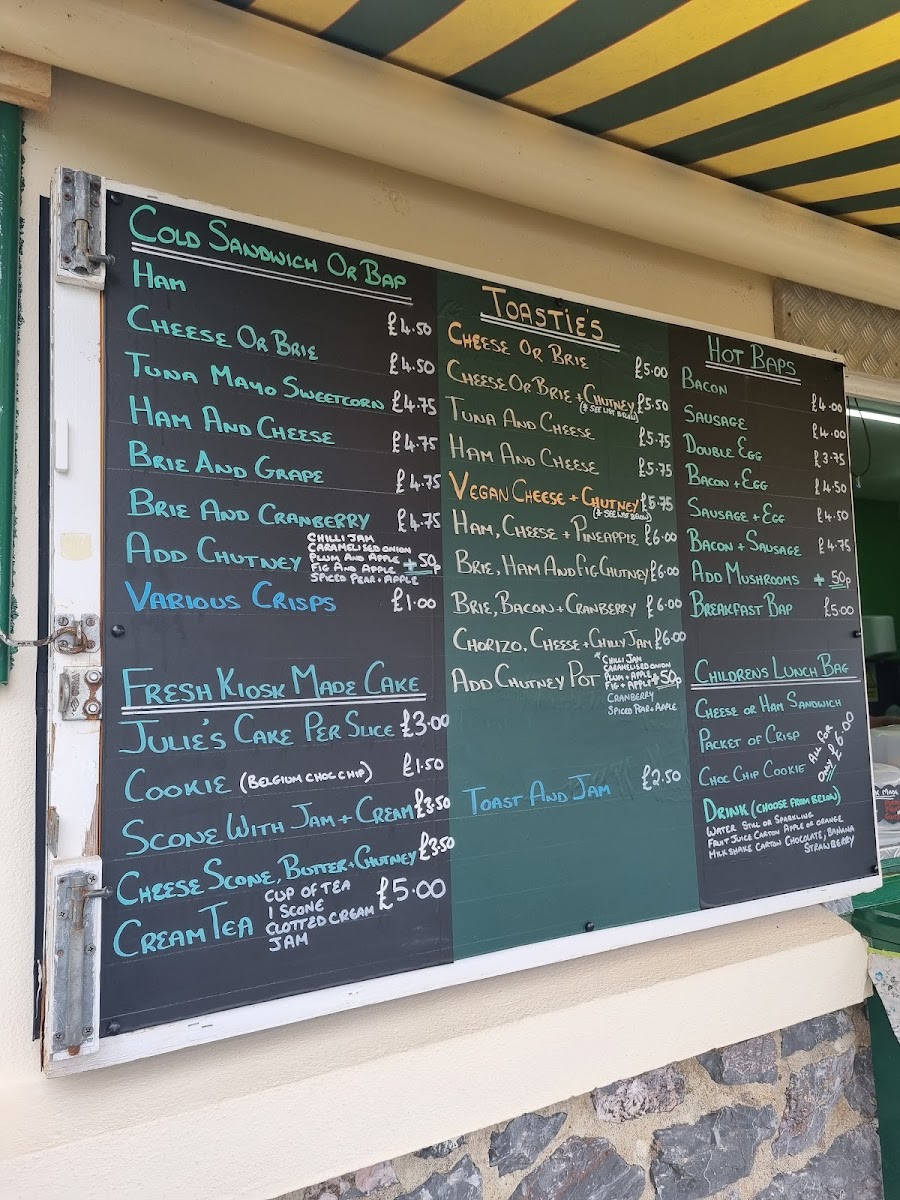 COLD SANDWICH OR BAP
HAM £4.50
CHEESE OR BRIE £4.50
TUNA MAYO SWEETCORN £4.75
HAM AND CHEESE £4.75
BRIE AND GRAPE £4.75
BRIE AND CRANBERRY £4.75
ADD CHUTNEY +50p
CHILLI JAM
CARAMELISED ONION
PLUM AND APPLE
FIG AND APPLE
SPICED PEAR + APPLE
VARIOUS CRISPS £1.00
FRESH KIOSK MADE CAKE
JULIE'S CAKE PER SLICE £3.00
COOKIE (BELGIUM CHOC CHIP) £1.50
SCONE WITH JAM + CREAM £3.50
CHEESE SCONE, BUTTER + CHUTNEY £3.50
CREAM TEA £5.00
CUP OF TEA
1 SCONE
CLOTTED CREAM
JAM
TOASTIE'S
CHEESE OR BRIE £5.00
CHEESE OR BRIE + CHUTNEY £5.50
(* SEE LIST BELOW)
TUNA AND CHEESE £5.75
HAM AND CHEESE £5.75
VEGAN CHEESE + CHUTNEY £5.75
(* SEE LIST BELOW)
HAM, CHEESE + PINEAPPLE £6.00
BRIE, HAM AND FIG CHUTNEY £6.00
BRIE, BACON + CRANBERRY £6.00
CHORIZO, CHEESE + CHILLY JAM £6.00
ADD CHUTNEY POT +50p
* CHILLI JAM
CARAMELISED ONION
PLUM + APPLE
FIG + APPLE
CRANBERRY
SPICED PEAR + APPLE
TOAST AND JAM £2.50
HOT BAPS
BACON £4.00
SAUSAGE £4.00
DOUBLE EGG £3.75
BACON + EGG £4.50
SAUSAGE + EGG £4.50
BACON + SAUSAGE £4.75
ADD MUSHROOMS + 50p
BREAKFAST BAP £5.00
CHILDRENS LUNCH BAG
CHEESE OR HAM SANDWICH
PACKET OF CRISP
CHOC CHIP COOKIE
ALL FOR
ONLY £6.00
DRINK (CHOOSE FROM BELOW)
WATER STILL OR SPARKLING
FRUIT JUICE CARTON APPLE OR ORANGE
MILKSHAKE CARTON CHOCOLATE, BANANA
STRAWBERRY